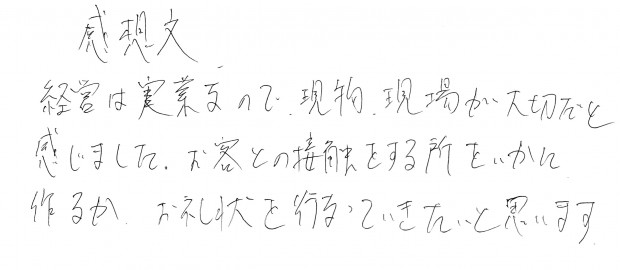 感想文
経営は実業なので、現物、現場が大切だと
感じました。お客との接触をする所をいかに
作るか、お礼状を行なっていきたいと思います